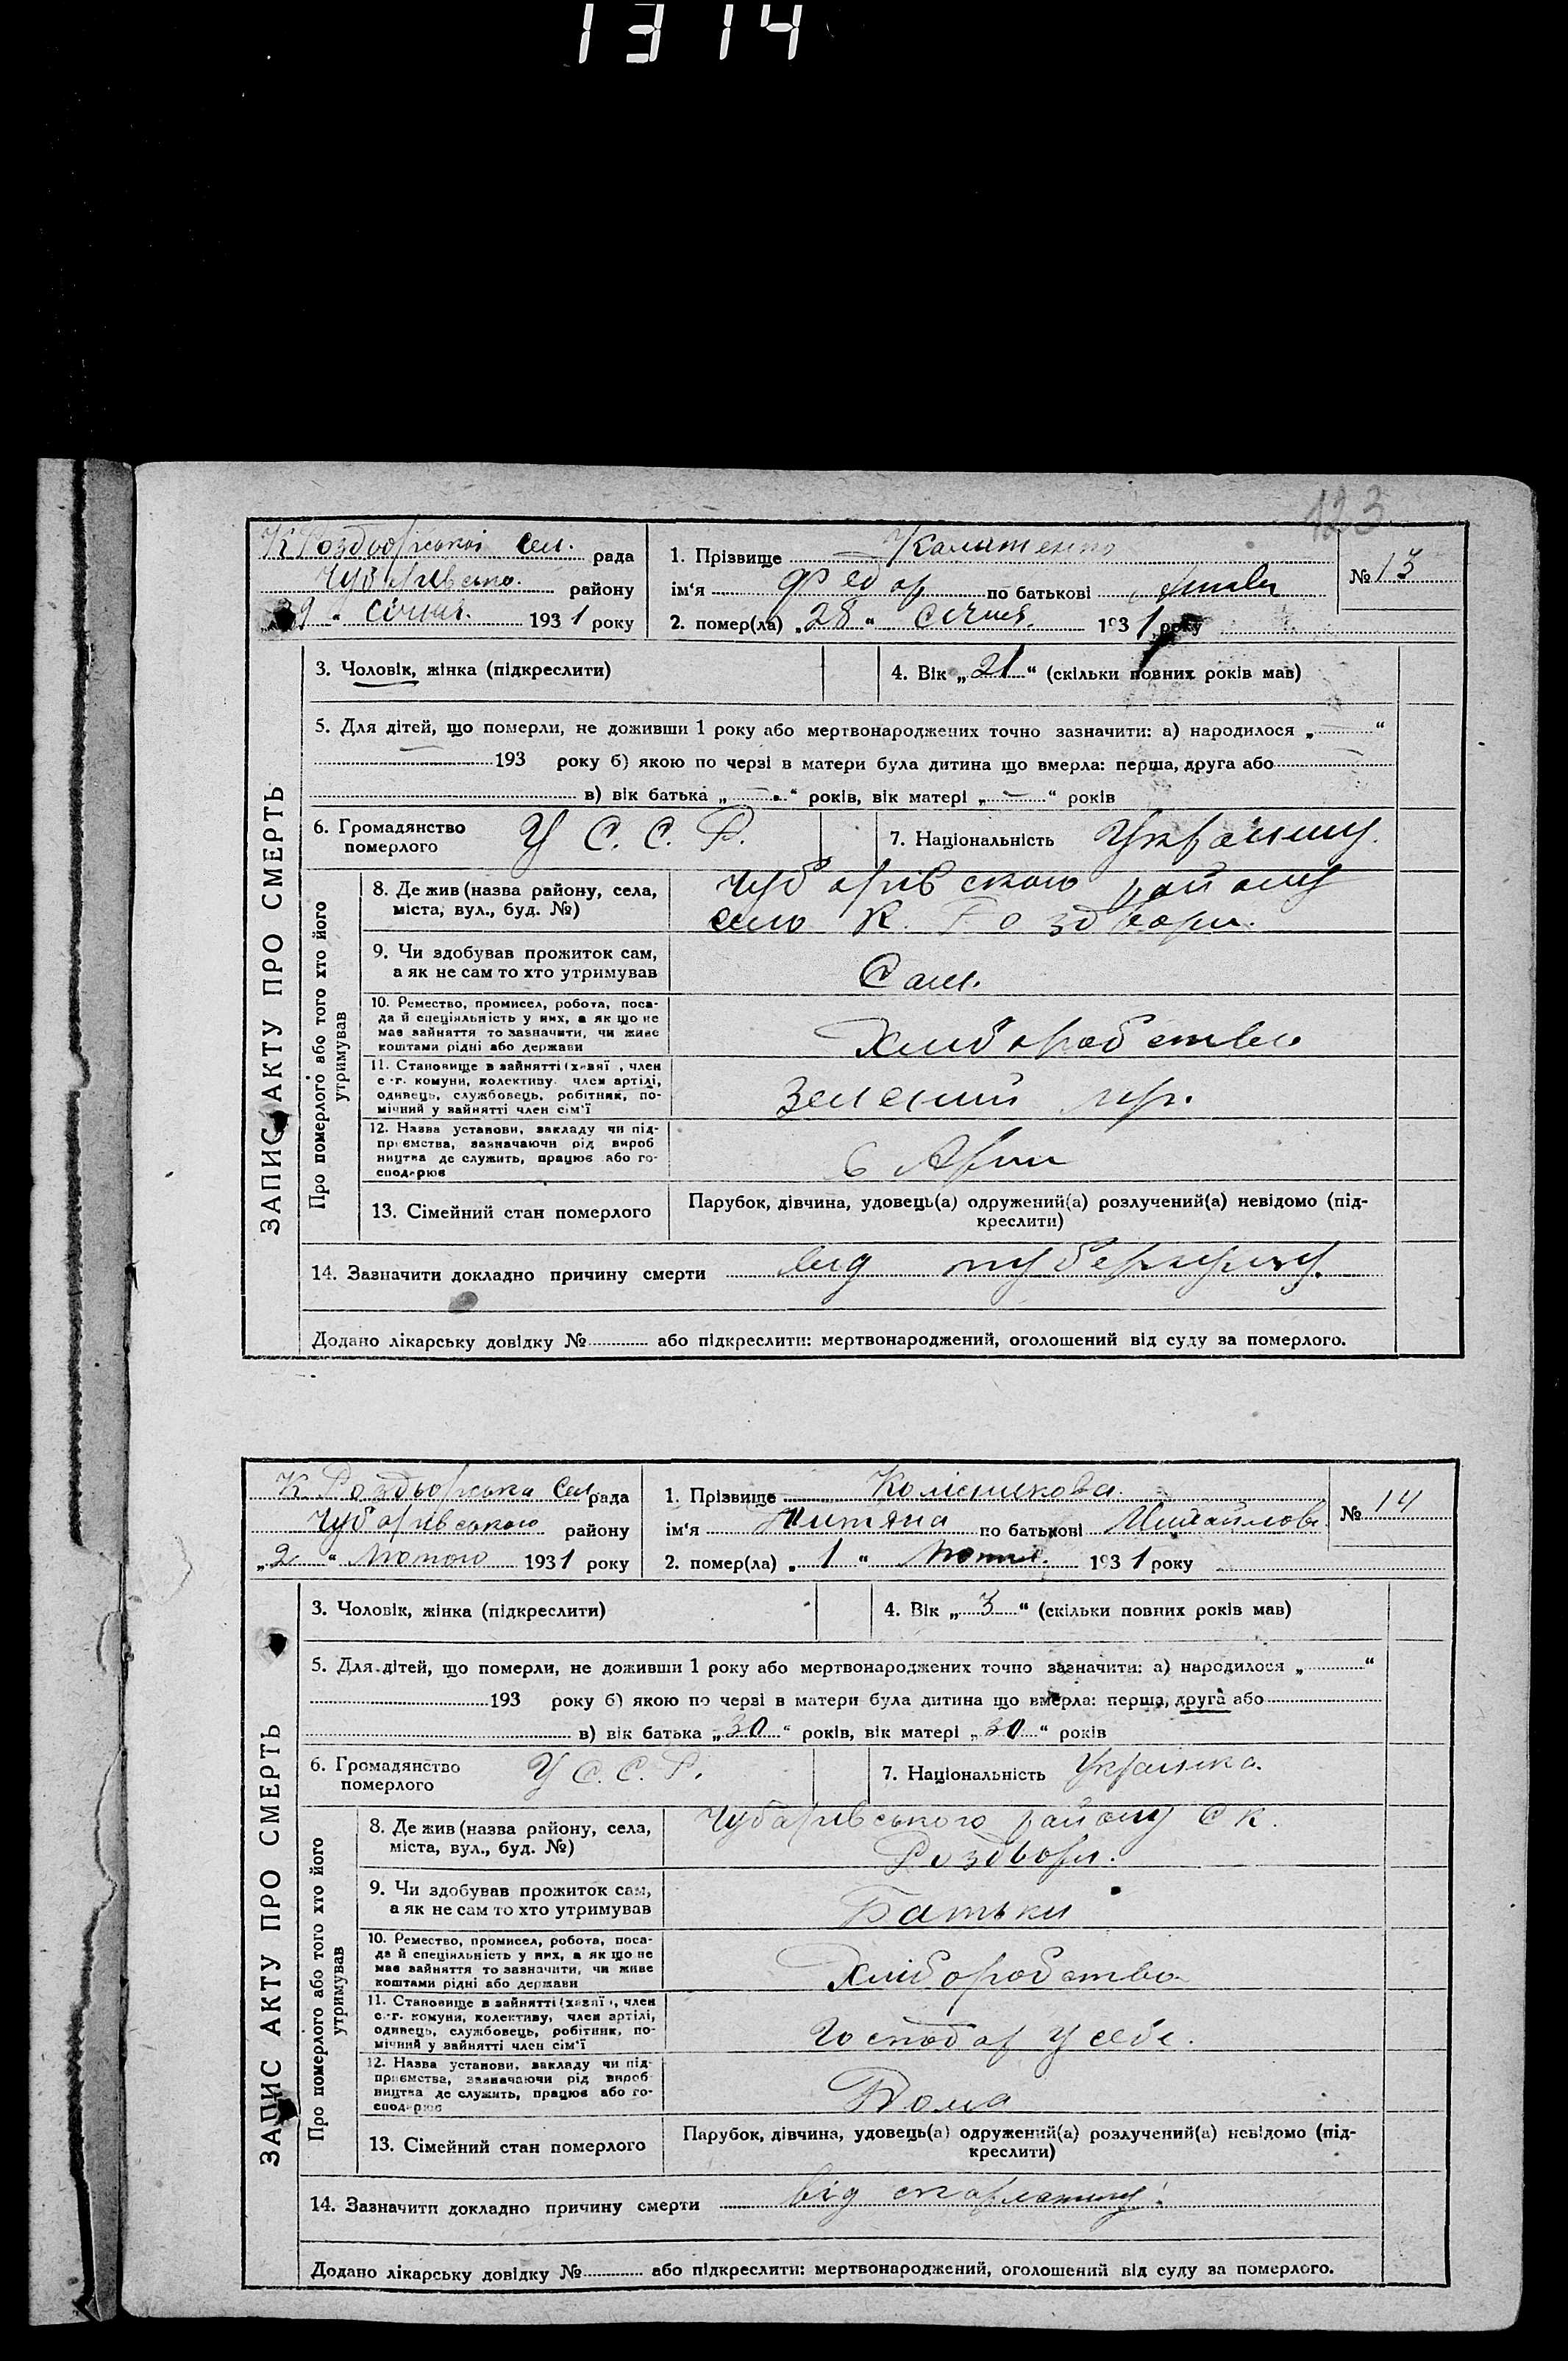 1314
123
К Роздорської Сел. рада
Чубарівсько. району
29 " січня. 1931 року
1. Прізвище
ім'я Федор по батькові
2. помер(ла) „28" січня. 1931 року
№ 13
ЗАПИС АКТУ ПРО СМЕРТЬ
3. Чоловік, жінка (підкреслити)
4. Вік „21" (скільки повних років мав)
5. Для дітей, що померли, не доживши 1 року або мертвонароджених точно зазначити: а) народилося „ "
193 року б) якою по черзі в матери була дитина що вмерла: перша, друга або
в) вік батька „ - " років, вік матері „ - " років
6. Громадянство померлого У С. С. Р.
7. Національність
Про померлого або того хто його утримував
8. Де жив (назва району, села,
міста, вул., буд. №)
Чубарівского району
село К. Роздори.
9. Чи здобував прожиток сам,
а як не сам то хто утримував
Сам.
10. Ремество, промисел, робота, поса-
да й спеціяльність у них, а як що не
має зайняття то зазначити, чи живе
коштами рідні або держави
Хліборобство
11. Становище в зайнятті (хазяї, член
с.-г. комуни, колективу, член артілі,
одинець, службовець, робітник, по-
мічний у зайнятті член сім'ї
12. Назва установи, закладу чи під-
приємства, зазначаючи рід вироб
ництва де служить, працює або го-
сподарює
13. Сімейний стан померлого
Парубок, дівчина, удовець(а) одружений(а) розлучений(а) невідомо (під-
креслити)
14. Зазначити докладно причину смерти від
Додано лікарську довідку № або підкреслити: мертвонароджений, оголошений від суду за померлого.
К Роздорська Сел. рада
Чубарівського району
„2 " Лютого 1931 року
1. Прізвище Колісникова.
ім'я по батькові Михайлов.
2. помер(ла) „ 1 " Лютня. 1931 року
№ 14
ЗАПИС АКТУ ПРО СМЕРТЬ
3. Чоловік, жінка (підкреслити)
4. Вік „ 3 " (скільки повних років мав)
5. Для дітей, що померли, не доживши 1 року або мертвонароджених точно зазначити: а) народилося „ "
193 року б) якою по черзі в матери була дитина що вмерла: перша, друга або
в) вік батька „30" років, вік матері „30" років
6. Громадянство померлого У С. С. Р.
7. Національність Українка.
Про померлого або того хто його утримував
8. Де жив (назва району, села,
міста, вул., буд. №)
Чубарівського району С К.
Роздори.
9. Чи здобував прожиток сам,
а як не сам то хто утримував
Батьки
10. Ремество, промисел, робота, поса-
да й спеціяльність у них, а як що не
має зайняття то зазначити, чи живе
коштами рідні або держави
Хліборобство
11. Становище в зайнятті (хазяї, член
с.-г. комуни, колективу, член артілі,
одинець, службовець, робітник, по-
мічний у зайнятті член сім'ї
Господар у себе.
12. Назва установи, закладу чи під-
приємства, зазначаючи рід вироб
ництва де служить, працює або го-
сподарює
Дома
13. Сімейний стан померлого
Парубок, дівчина, удовець(а) одружений(а) розлучений(а) невідомо (під-
креслити)
14. Зазначити докладно причину смерти від скарлатини.
Додано лікарську довідку № або підкреслити: мертвонароджений, оголошений від суду за померлого.